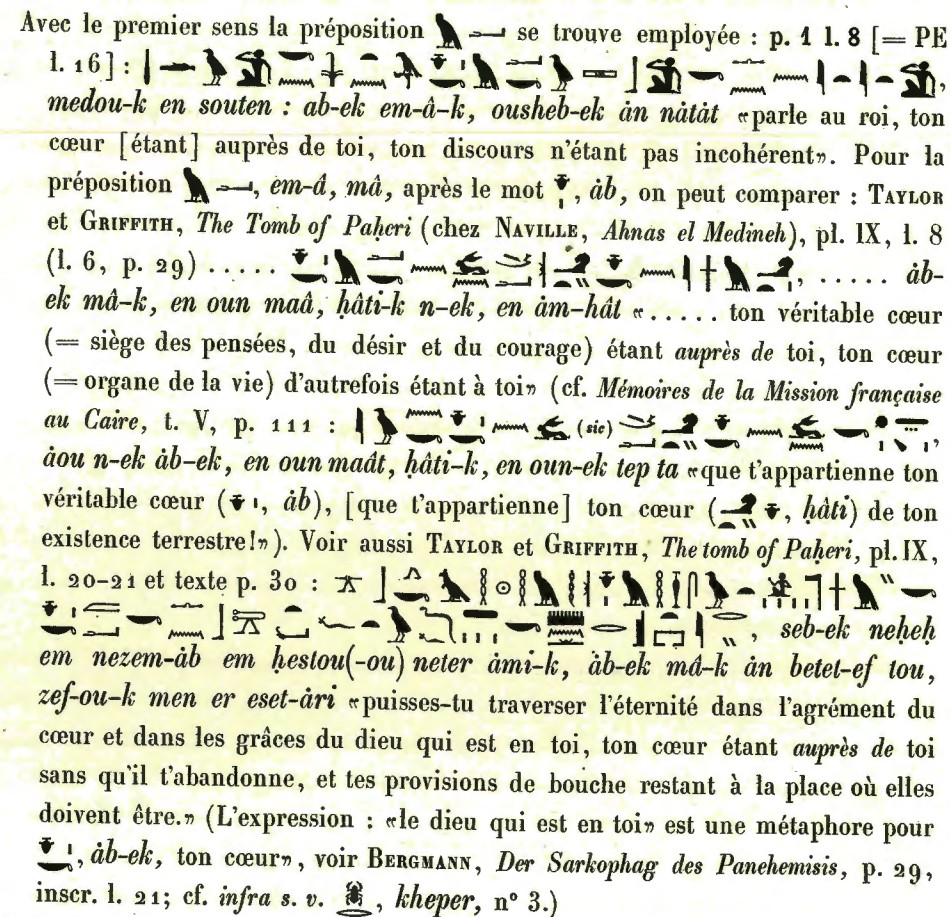 Avec le premier sens la préposition se trouve employée : p. 1 l. 8 [= PE
l. 16] : ,
medou-k en souten : ab-ek em-â-k, ousheb-ek àn nàtàt «parle au roi, ton
cœur [étant] auprès de toi, ton discours n'étant pas incohérent». Pour la
préposition , em-â, mâ, après le mot , àb, on peut comparer : TAYLOR
et GRIFFITH, The Tomb of Paḥeri (chez NAVILLE, Ahnas el Medineh), pl. IX, l. 8
(l. 6, p. 29) ..... , ..... àb-
ek mâ-k, en oun maâ, ḥâti-k n-ek, en àm-ḥât «..... ton véritable cœur
(= siège des pensées, du désir et du courage) étant auprès de toi, ton cœur
(= organe de la vie) d'autrefois étant à toi» (cf. Mémoires de la Mission française
au Caire, t. V, p. 111 : (sic) ,
àou n-ek àb-ek, en oun maât, ḥâti-k, en oun-ek tep ta «que t'appartienne ton
véritable cœur ( , àb), [que t'appartienne] ton cœur ( , ḥâti) de ton
existence terrestre!»). Voir aussi TAYLOR et GRIFFITH, The tomb of Paḥeri, pl. IX,
l. 20-21 et texte p. 30 :
, seb-ek neḥeḥ
em nezem-àb em ḥestou(-ou) neter àmi-k, àb-ek mâ-k àn betet-ef tou,
zef-ou-k men er eset-àri «puisses-tu traverser l'éternité dans l'agrément du
cœur et dans les grâces du dieu qui est en toi, ton cœur étant auprès de toi
sans qu'il t'abandonne, et tes provisions de bouche restant à la place où elles
doivent être.» (L'expression : «le dieu qui est en toi» est une métaphore pour
, àb-ek, ton cœur», voir BERGMANN, Der Sarkophag des Panehemisis, p. 29,
inscr. l. 21; cf. infra s. v. , kheper, n° 3.)